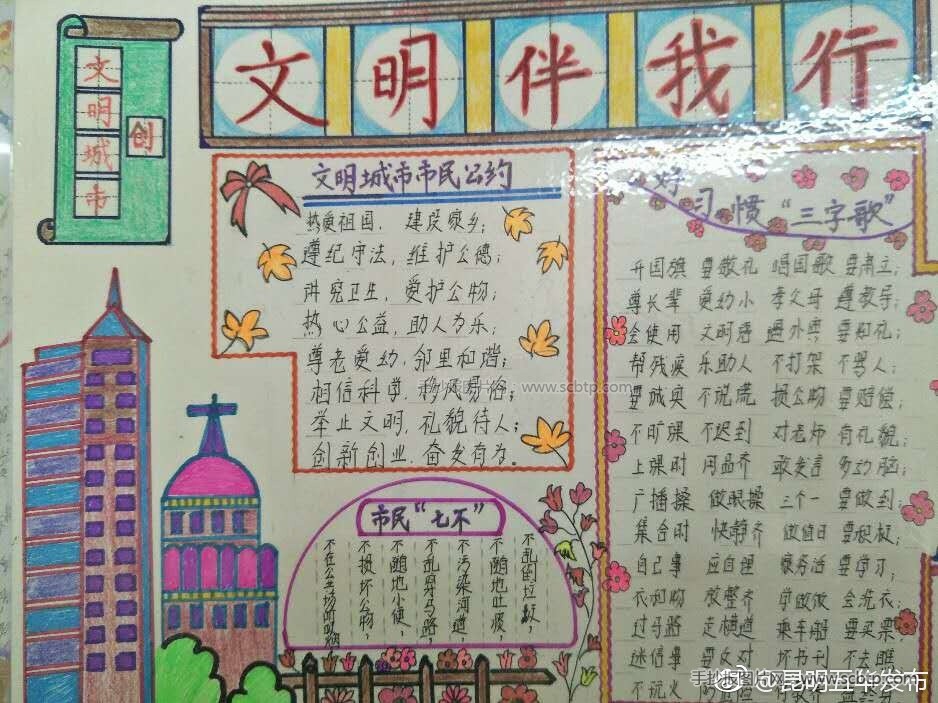 文明城市
创
文明伴我行
文明城市市民公约
热爱祖国，建设家乡；
遵纪守法，维护公德；
讲究卫生，爱护公物；
热心公益，助人为乐；
尊老爱幼，邻里和谐；
相信科学，移风易俗；
举止文明，礼貌待人；
创新创业，奋发有为。
手抄报图片网：www.scbtp.com
市民“七不”
不乱倒垃圾，
不随地吐痰，
不污染河道，
不乱穿马路，
不随地小便，
不损坏公物，
不在公共场所吸烟。
好习惯“三字歌”
升国旗 要敬礼 唱国歌 要肃立；
尊长辈 爱幼小 孝父母 遵教导；
会使用 文明语 遇外宾 要知礼；
帮残疾 乐助人 不打架 不骂人；
要诚实 不说谎 损公物 要赔偿；
不旷课 不迟到 对老师 有礼貌；
上课时 用品齐 敢发言 多动脑；
广播操 做眼操 三个一 要做到；
集合时 快静齐 做值日 要积极；
自己事 应自理 家务活 要学习；
衣和物 放整齐 学做饭 会洗衣；
过马路 走横道 乘车船 要买票
迷信事 要反对 坏书刊 不去瞧
不玩火
手抄报图片网：www.scbtp.com
@昆明五华发布